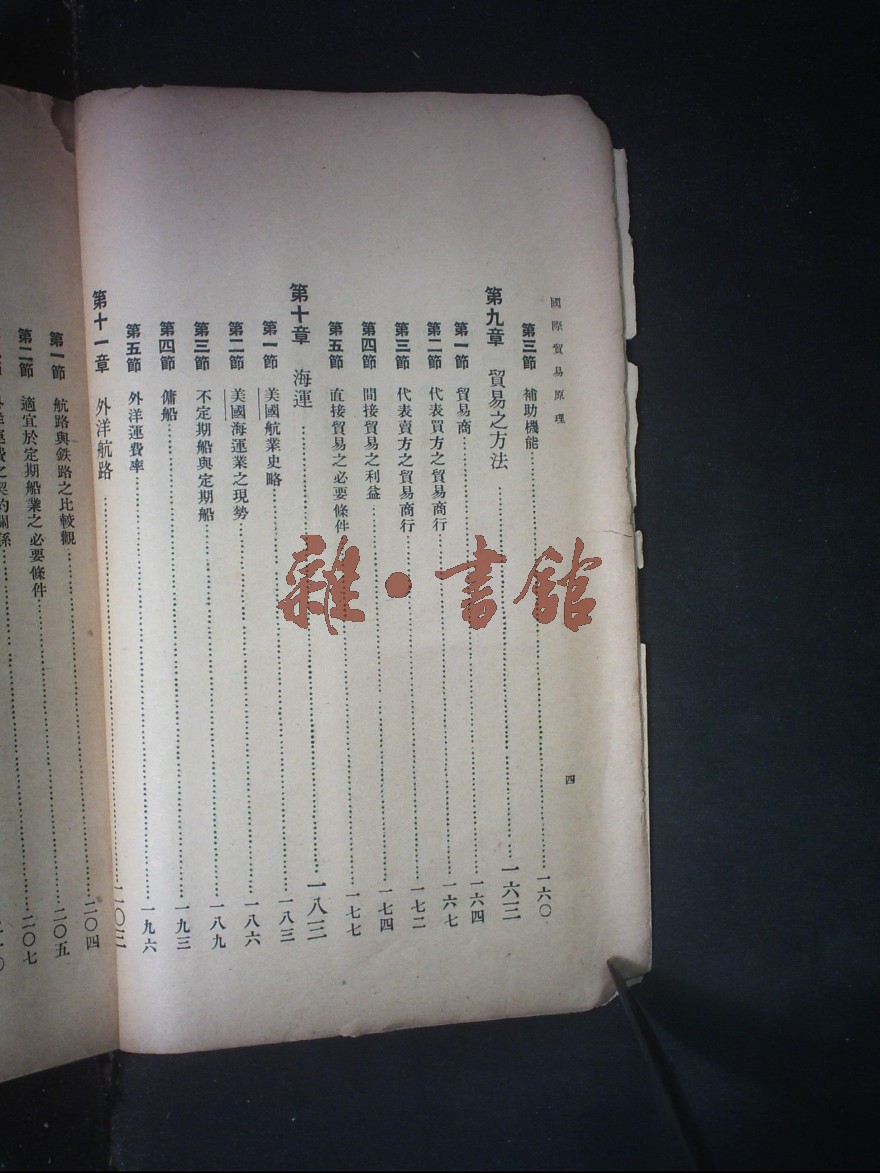 國際貿易原理
四
第三節 補助機能 一六〇
第九章 貿易之方法 一六三
第一節 貿易商 一六四
第二節 代表買方之貿易商行 一六七
第三節 代表賣方之貿易商行 一七二
第四節 間接貿易之利益 一七四
第五節 直接貿易之必要條件 一七七
第十章 海運 一八三
第一節 美國航業史略 一八三
第二節 美國海運業之現勢 一八六
第三節 不定期船與定期船 一八九
第四節 傭船 一九三
第五節 外洋運費率 一九六
第十一章 外洋航路 二〇三
第一節 航路與鉄路之比較觀 二〇四
第二節 適宜於定期船業之必要條件 二〇五
二〇七
雜·書館